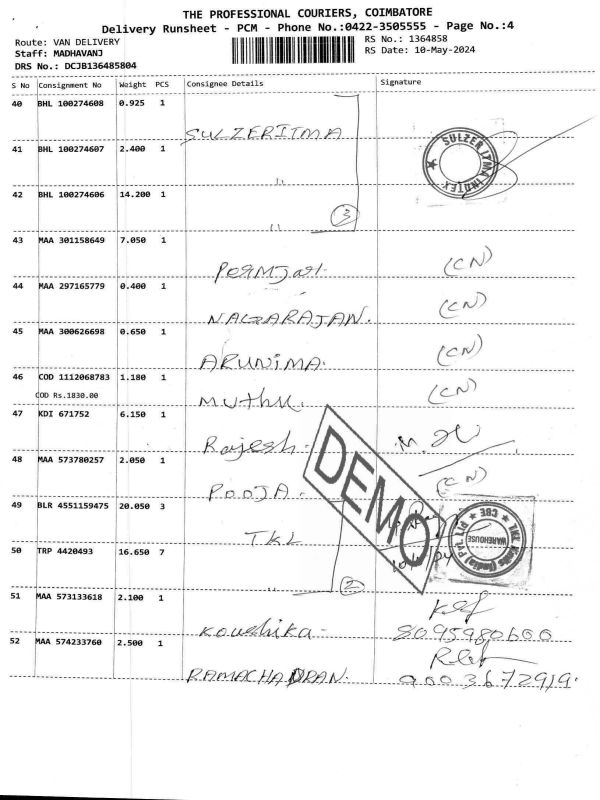 THE PROFESSIONAL COURIERS, COIMBATORE
Delivery Runsheet - PCM - Phone No.:0422-3505555 - Page No.:4
Route: VAN DELIVERY
RS No.: 1364858
Staff: MADHAVANJ
RS Date: 10-May-2024
DRS No.: DCJB136485804
S No Consignment No Weight PCS Consignee Details Signature
40 BHL 100274608 0.925 1
SULZERITMA
SULZER ITMA INDTEX
41 BHL 100274607 2.400 1
"
42 BHL 100274606 14.200 1
" 3
43 MAA 301158649 7.050 1
(CN)
44 MAA 297165779 0.400 1
NAGARAJAN. (CN)
45 MAA 300626698 0.650 1
ARUNIMA. (CN)
46 COD 1112068783 1.180 1
COD Rs.1830.00
Muthu. (CN)
47 KDI 671752 6.150 1
Rajesh-
48 MAA 573780257 2.050 1
POOJA- (CN)
DEMO
49 BLR 4551159475 20.050 3
TKL
(India) Pvt Ltd ★ CBE ★
WAREHOUSE
50 TRP 4420493 16.650 7
" 2
51 MAA 573133618 2.100 1
Koushika- 8095980600
52 MAA 574233760 2.500 1
RAMACHADRAN. 9003672919.